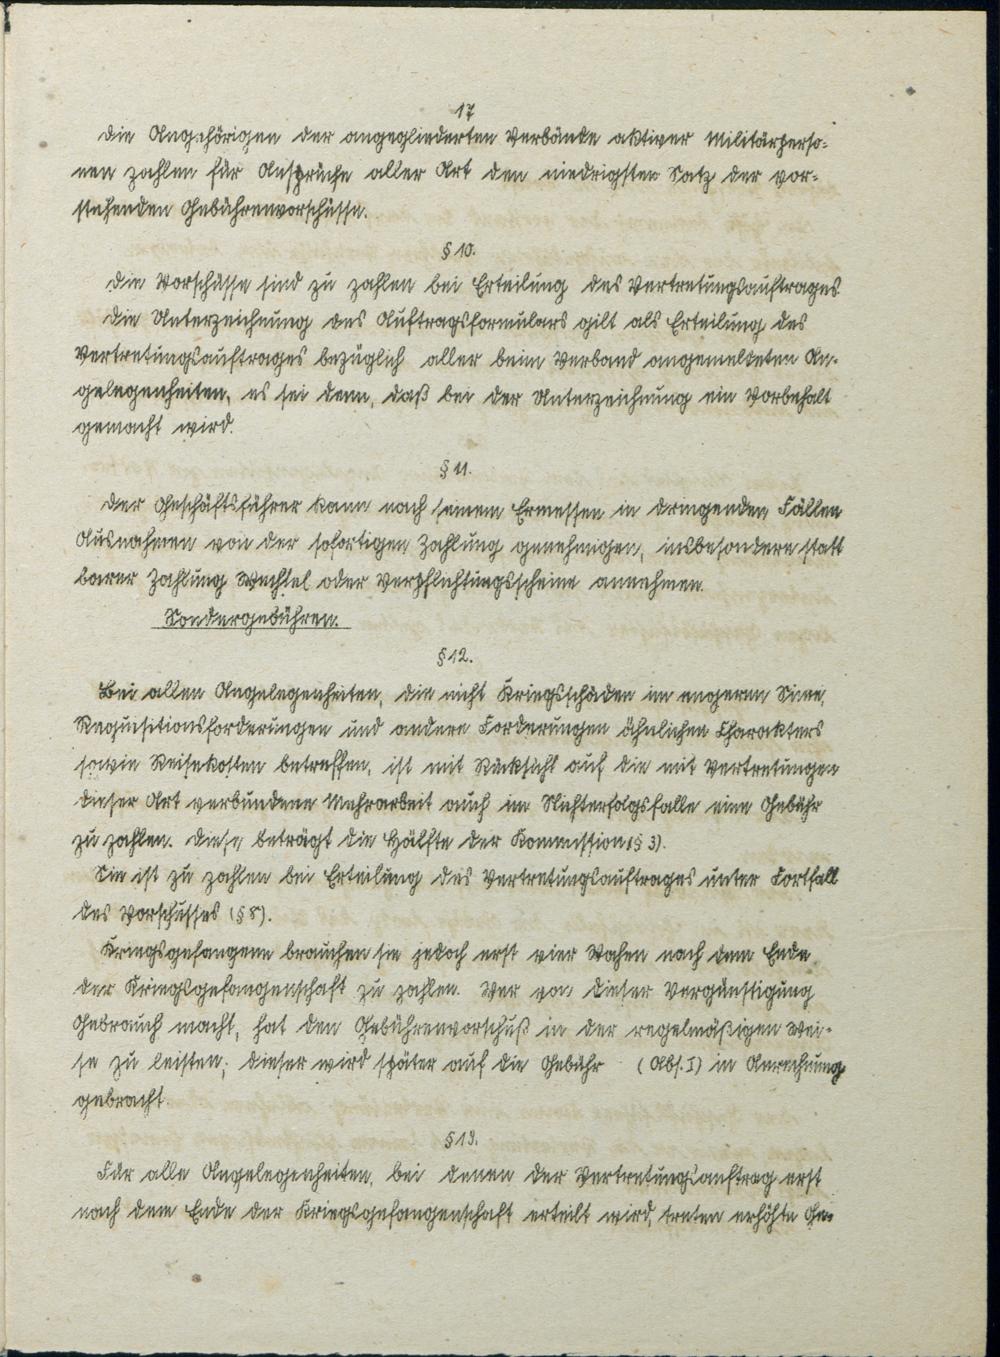 17
Die Angehörigen der angegliederten Verbände aktiver Militärperso-
nen zahlen für Ansprüche aller Art den niedrigsten Satz der vor-
stehenden Gebührenvorschüsse.
§ 10.
Die Vorschüsse sind zu zahlen bei Erteilung des Vertretungsauftrages
Die Unterzeichnung des Auftragsformulars gilt als Erteilung des
Vertretungsauftrages bezüglich aller beim Verband angemeldeten An-
gelegenheiten, es sei denn, daß bei der Unterzeichnung ein Vorbehalt
gemacht wird.
§ 11.
Der Geschäftsführer kann nach seinem Ermessen in dringenden Fällen
Ausnahmen von der sofortigen Zahlung genehmigen, insbesondere statt
barer Zahlung Wechsel oder Verpflichtungsscheine annehmen.
Sondergebühren.
§ 12.
Bei allen Angelegenheiten, die nicht Kriegsschäden im engeren Sinne,
Requisitionsforderungen und andere Forderungen ähnlichen Charakters
sowie Reisekosten betreffen, ist mit Rücksicht auf die mit Vertretungen
dieser Art verbundene Mehrarbeit auch im Nichterfolgsfalle eine Gebühr
zu zahlen. Diese beträgt die Hälfte der Kommission (§ 3).
Sie ist zu zahlen bei Erteilung des Vertretungsauftrages unter Fortfall
des Vorschusses (§ 8).
Kriegsgefangene brauchen sie jedoch erst vier Wochen nach dem Ende
der Kriegsgefangenschaft zu zahlen. Wer von dieser Vergünstigung
Gebrauch macht, hat den Gebührenvorschuß in der regelmäßigen Wei-
se zu leisten; dieser wird später auf die Gebühr (Abs. I) in Anrechnung
gebracht.
§ 13.
Für alle Angelegenheiten, bei denen der Vertretungsauftrag erst
nach dem Ende der Kriegsgefangenschaft erteilt wird, treten erhöhte Ge-